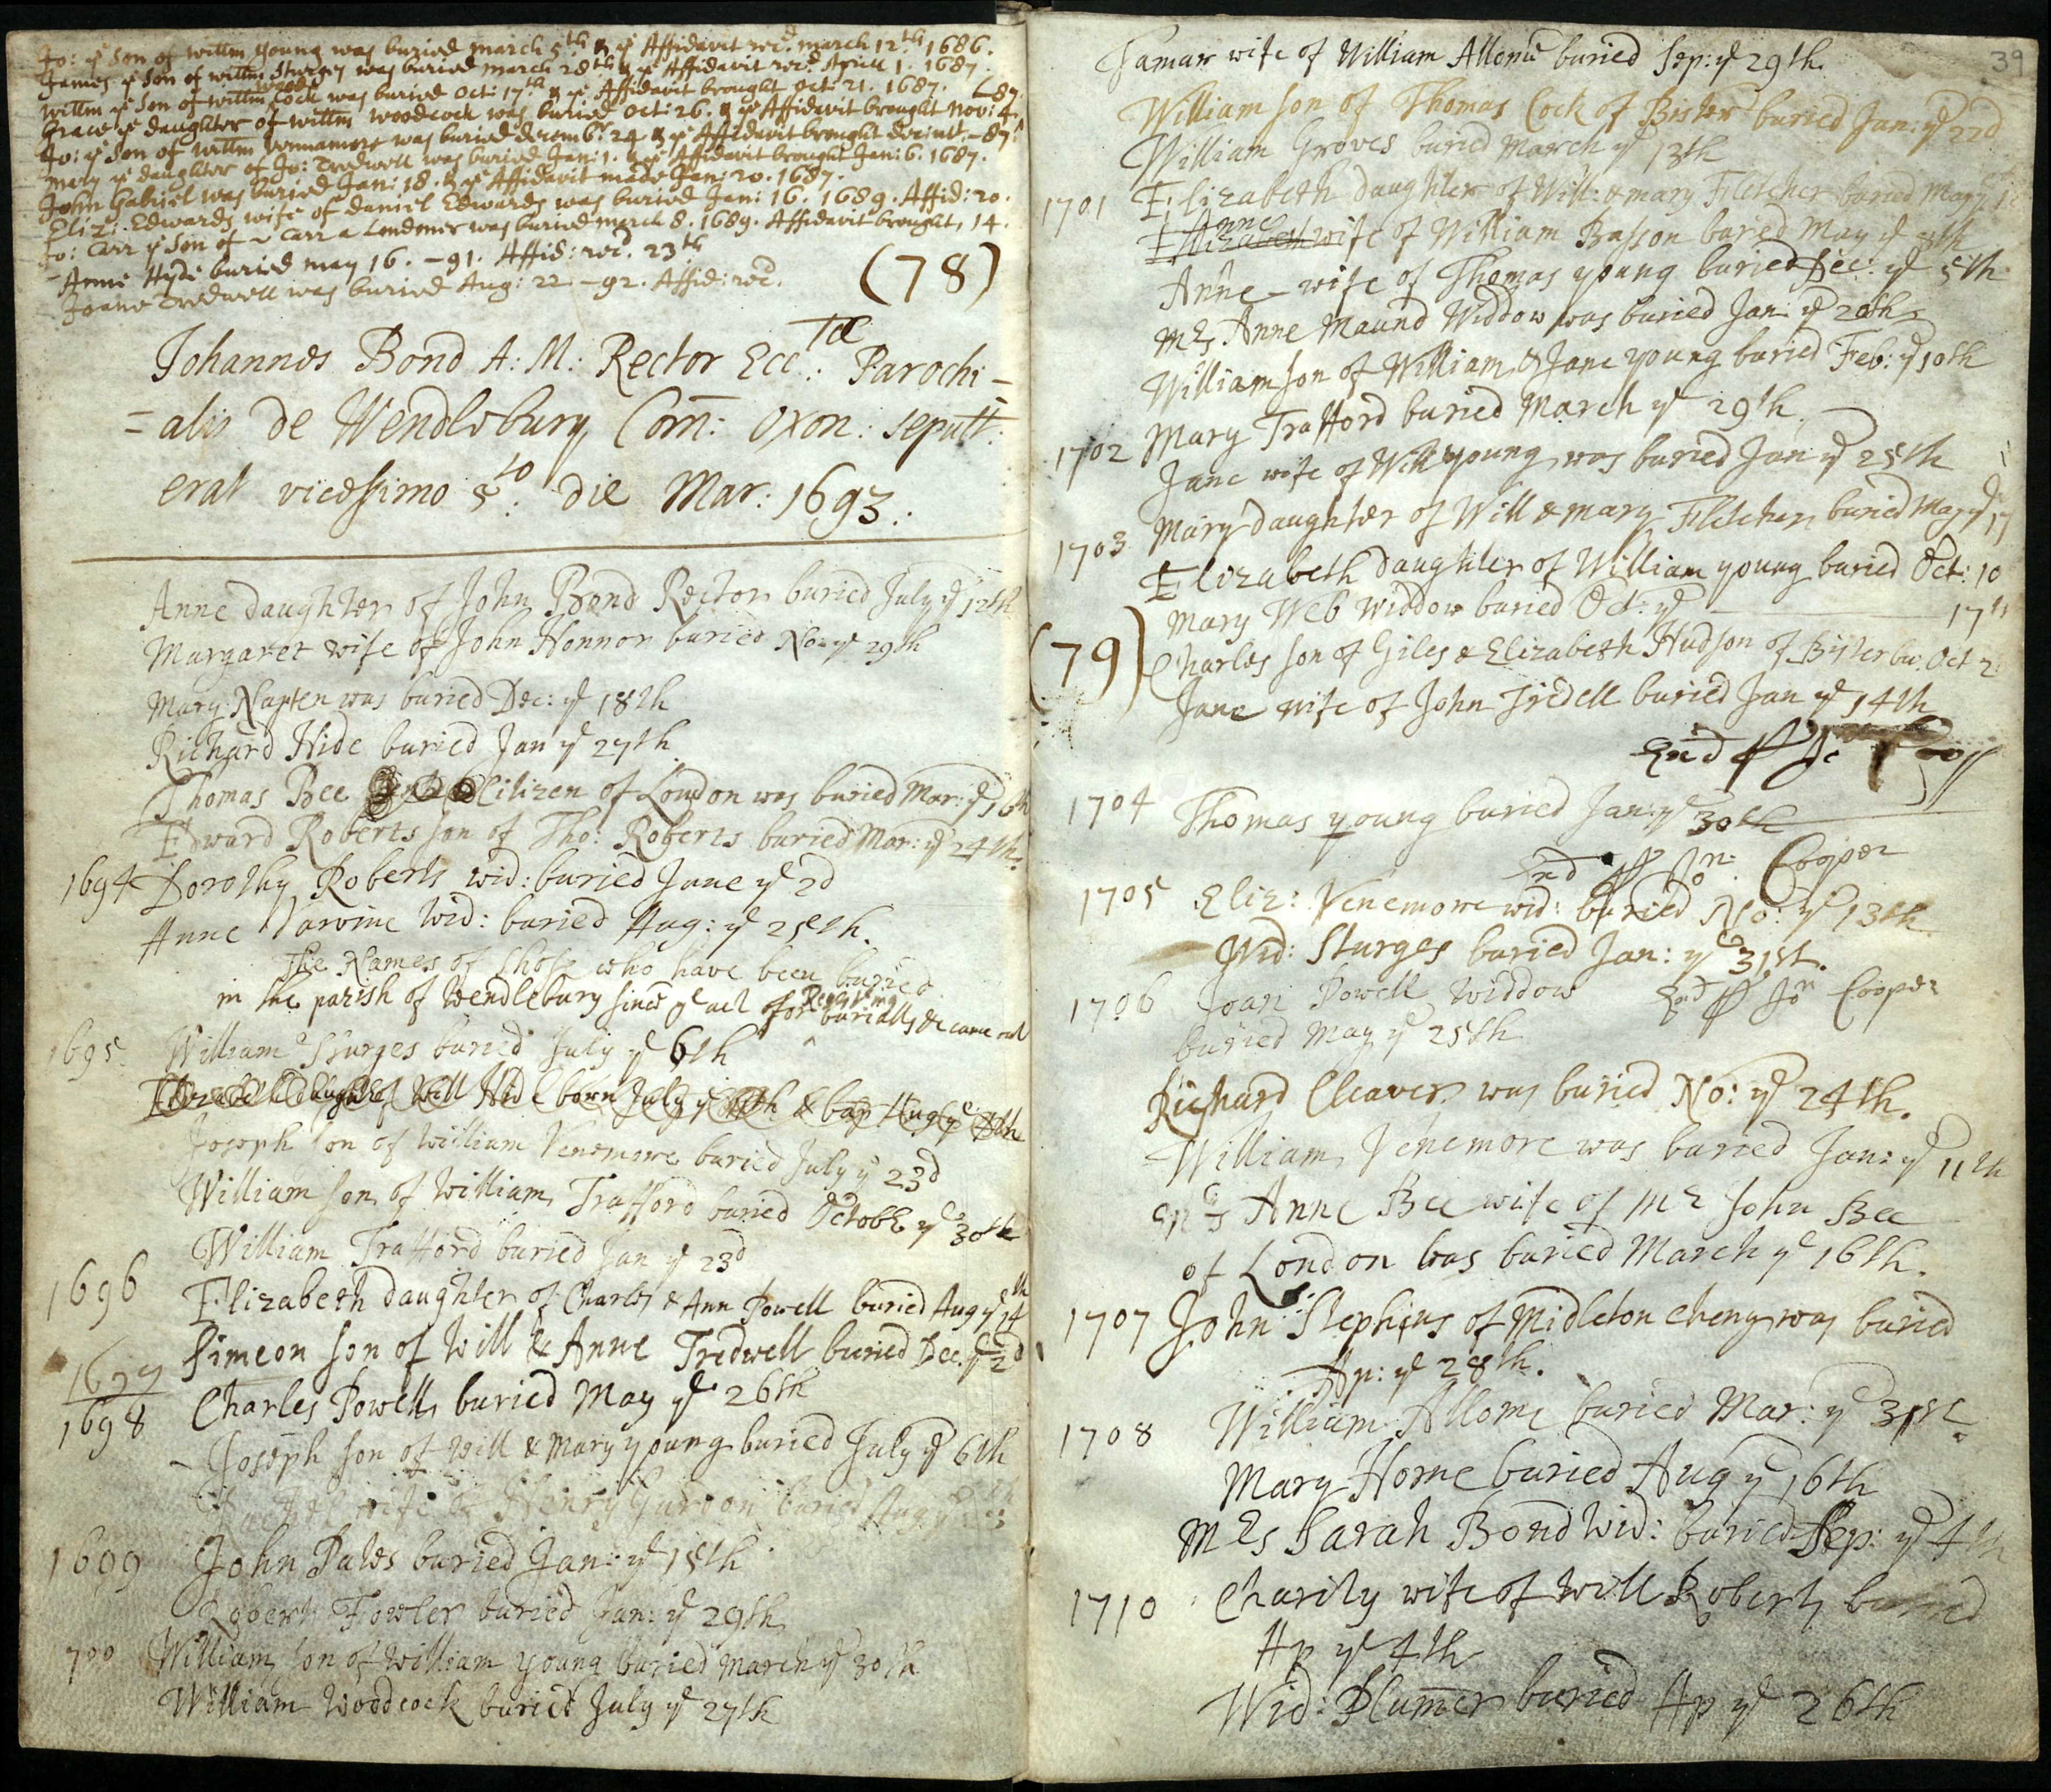 Jo: ye Son of willm Young was buried march 5th & ye Affidavit recd march 12th 1686.
James ye Son of willm Sturges was buried march 28th & ye Affidavit recd Aprill 1. 1687.
willm ye Son of willm woodcock was buried Oct: 17th & ye Affidavit brought Oct: 21. 1687.
Grace ye daughter of willm woodcock was buried Oct: 26. & ye Affidavit brought Nov: 4. 87.
Jo: ye Son of willm vennamore was buried decemb: 24 & ye Affidavit brought - 87.
mary ye daughter of Jo: Tredwell was buried Jan: 1. & ye Affidavit brought Jan: 6. 1687.
John Gabriel was buried Jan: 18. & ye Affidavit made Jan: 20. 1687.
Eliz: Edwards wife of daniel Edwards was buried Jan: 16. 1689. Affid: 20.
Jo: Carr ye Son of ~ Carr a Londoner was buried march 8. 1689. Affidavit brought, 14.
- Anne Hyde buried may 16. - 91. Affid: recd. 23th
Joane Tredwell was buried Aug: 22 - 92. Affid: recd.
(78)
Johannes Bond A: M: Rector Ecc:iæ Parochi-
=alis de Wendlebury Com: Oxon: sepult:
erat vicessimo 5to: die Mar: 1693:
Anne daughter of John Bond Rector buried July ye 12th
Margaret wife of John Honnor buried No: ye 29th
Mary Napten was buried Dec: ye 18th
Richard Hide buried Jan ye 27th
Thomas Bee Citizen of London was buried Mar: ye 16th
Edward Roberts son of Tho: Roberts buried Mar: ye 24th.
1694 Dorothy Roberts wid: buried June ye 2d
Anne Jarvine Wid: buried Aug: ye 25th.
The Names of those who have been buried
in the parish of Wendlebury since ye act for Registring burialls &c came out
1695 William Sturges buried July ye 6th
Elizabeth daughter of Will Hide born July ye & bap Aug ye 4th
Joseph son of William Venemore buried July ye 23d
William son of William Trafford buried Octobr ye 30th
William Trafford buried Jan ye 23d
1696 Elizabeth daughter of Charles & Ann Powell buried Aug ye 14th
Simeon son of Will & Anne Tredwell buried Dec: ye 2d
1697
Charles Powell buried May ye 26th
1698
- Joseph son of Will & Mary young buried July ye 6th
wife of Henry Gurdon buried Aug
1699 John Pates buried Jan: ye 15th
Robert Fowler buried Jan: ye 29th
700 William son of William young buried March ye 30th
William Woodcock buried July ye 27th
39
Tamar wife of William Allome buried Sep: ye 29th
William son of Thomas Cock of Bister buried Jan: ye 22d
William Groves buried March ye 13th
1701 Elizabeth daughter of Will: & mary Fletcher buried May ye
Anne
Elizabeth wife of William Basson buried May ye 9th
Anne - wife of Thomas young buried Dec: ye 5th
Mrs Anne Maund Widdow was buried Jan: ye 20th
William son of William & Jane young buried Feb: ye 10th
Mary Trafford buried March ye 29th
1702 Jane wife of Will young was buried Jan ye 25th
Mary daughter of Will & mary Fletcher buried May ye 17
1703 Elizabeth daughter of William young buried Oct: 10
Mary Web widdow buried Oct: ye 17th
(79) Charles son of Giles & Elizabeth Hudson of Bister bu: Oct 2
Jane wife of John Iredell buried Jan ye 14th
1704 Thomas young buried Jan: ye 30th
Exd Jon: Cooper
1705 Eliz: Venemore wid: buried No: ye 13th
Wid: Sturges buried Jan: ye 31st.
1706 Joan Powell Widdow Exd Jon Cooper
buried May ye 25th
Richard Cleaver was buried No: ye 24th.
William Venemore was buried Jan: ye 11th
Mrs Anne Bee wife of Mr John Bee
of London was buried March ye 16th.
1707 John Stephins of Midleton Cheny was buried
Ap: ye 28th.
1708 William Allome buried Mar: ye 31st.
Mary Horne buried Aug ye 16th
Mrs Sarah Bond Wid: buried Sep: ye 4th
1710 Charity wife of Will Roberts buried
Ap ye 4th
Wid: Plumer buried Ap ye 26th